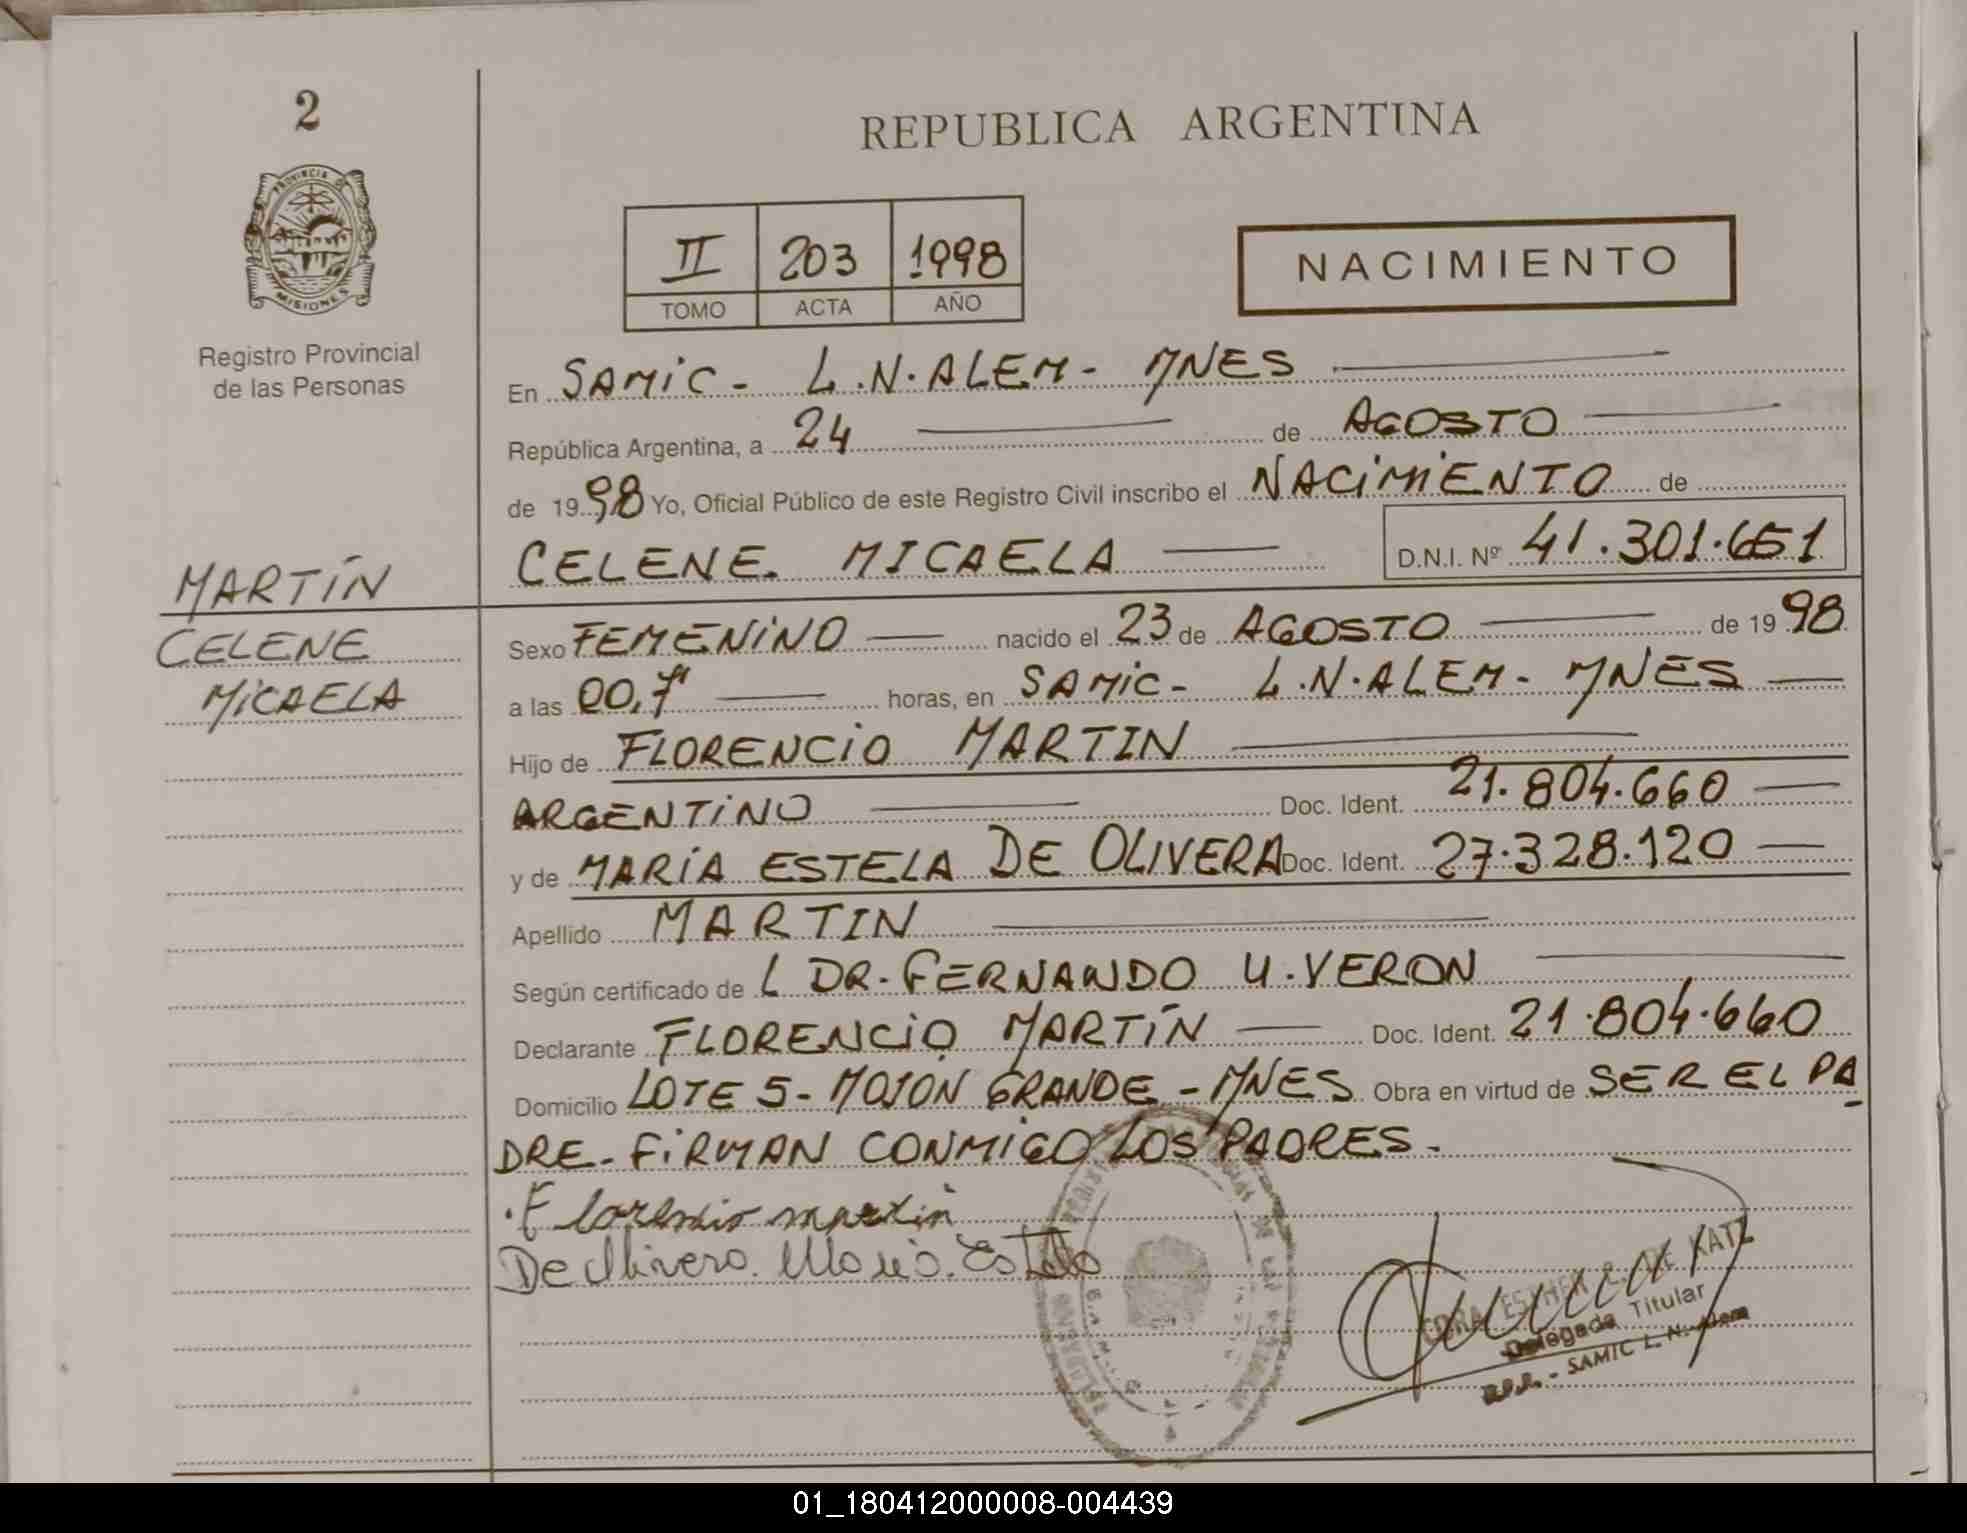 2
PROVINCIA DE
MISIONES
Registro Provincial
de las Personas
MARTÍN
CELENE
MICAELA
REPUBLICA ARGENTINA
II 203 1998
TOMO ACTA AÑO
NACIMIENTO
En SAMIC - L.N.ALEM - MNES
República Argentina, a 24 de AGOSTO
de 1998 Yo, Oficial Público de este Registro Civil inscribo el NACIMIENTO de
CELENE MICAELA D.N.I. Nº 41.301.651
Sexo FEMENINO nacido el 23 de AGOSTO de 1998
a las 00,7' horas, en SAMIC - L.N.ALEM - MNES
Hijo de FLORENCIO MARTIN
ARGENTINO Doc. Ident. 21.804.660
y de MARÍA ESTELA DE OLIVERA Doc. Ident. 27.328.120
Apellido MARTIN
Según certificado de L DR. FERNANDO U. VERON
Declarante FLORENCIO MARTÍN Doc. Ident. 21.804.660
Domicilio LOTE 5 - MOJON GRANDE - MNES Obra en virtud de SER EL PA
DRE - FIRMAN CONMIGO LOS PADRES -
Florencio martin
De Olivera Maria Estela
ESTHER KATZ
Delegada Titular
R.P.P. - SAMIC L. N. Alem
01_180412000008-004439